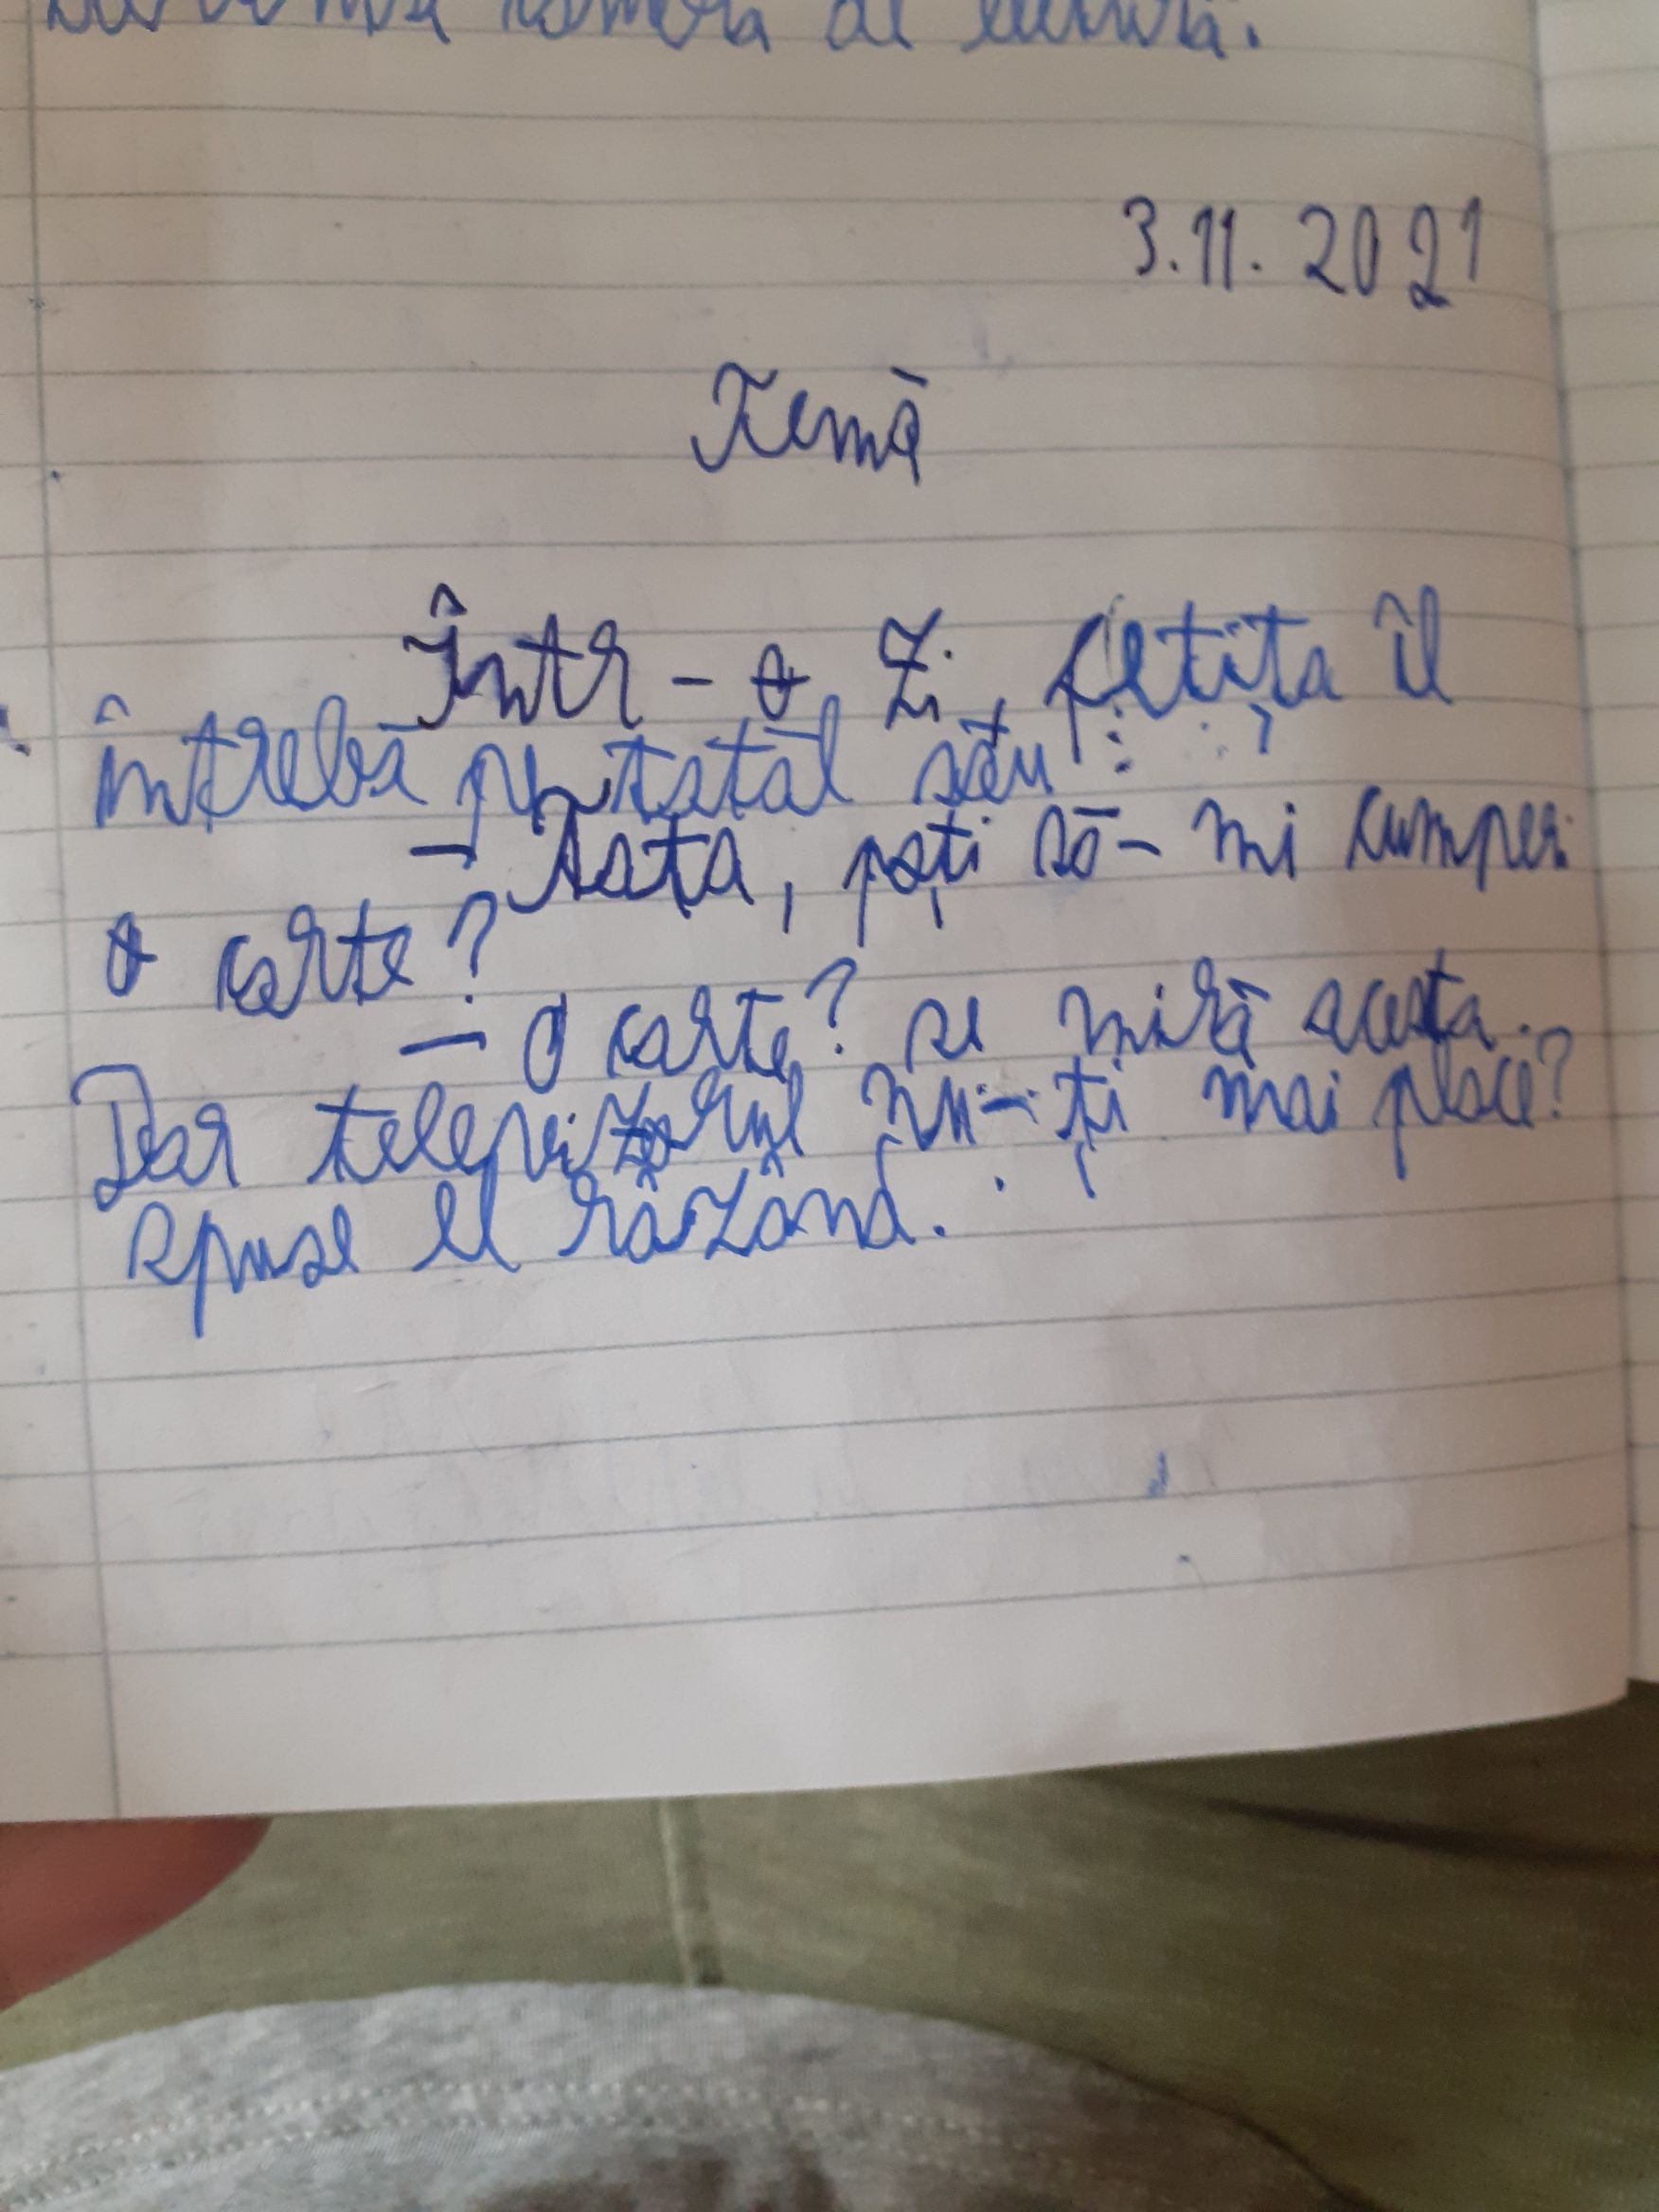 de
3.11.2021
Temă
Într-o zi, fetița îl
întrebă pe tatăl său:
- Tata, poți să-mi cumperi
o carte?
- O carte? se miră acesta.
Dar televizorul nu-ți mai place?
spuse el râzând.